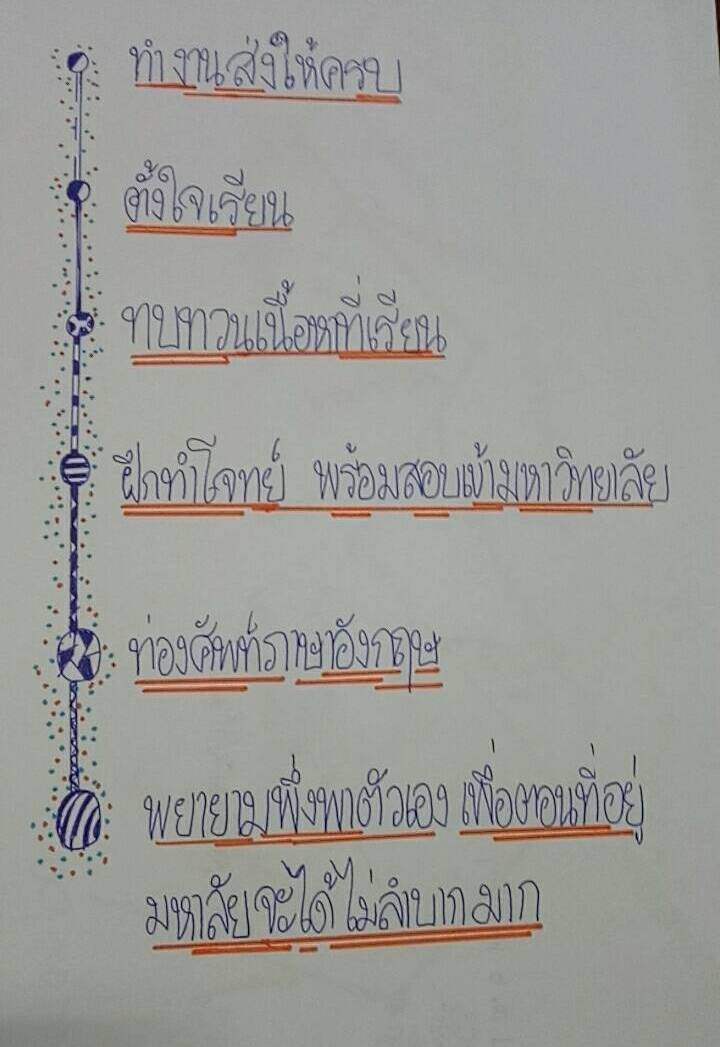 ทำงานส่งให้ครบ
ตั้งใจเรียน
ทบทวนเนื้อหาที่เรียน
ฝึกทำโจทย์ พร้อมสอบเข้ามหาวิทยาลัย
ท่องศัพท์ภาษาอังกฤษ
พยายามพึ่งพาตัวเอง เพื่อตอนที่อยู่
มหาลัยจะได้ไม่ลำบากมาก